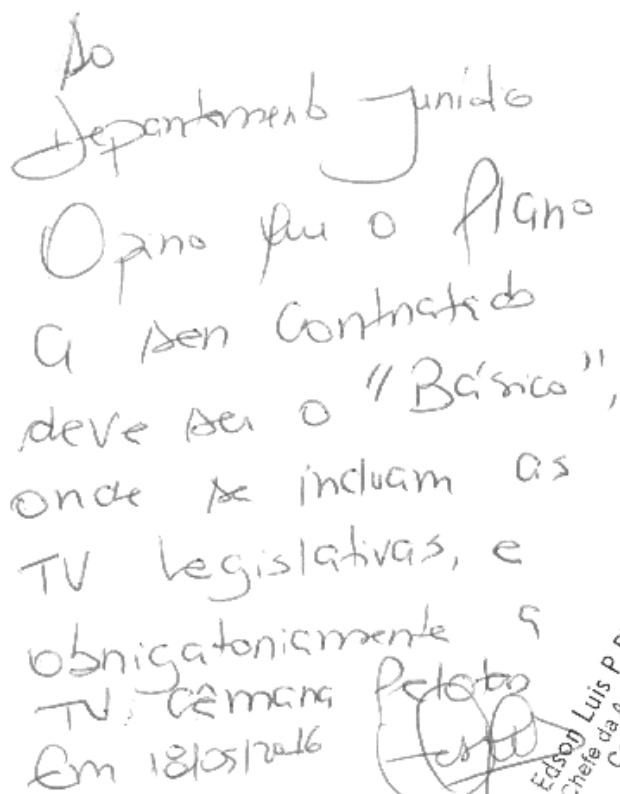 Ao
Departamento Jurídico
Opino que o Plano
a ser contratado
deve ser o "Básico",
onde se incluam as
TV Legislativas, e
obrigatoriamente a
TV Câmara Pelotas
Em 18/05/2016
Edson Luis P.
Chefe da A